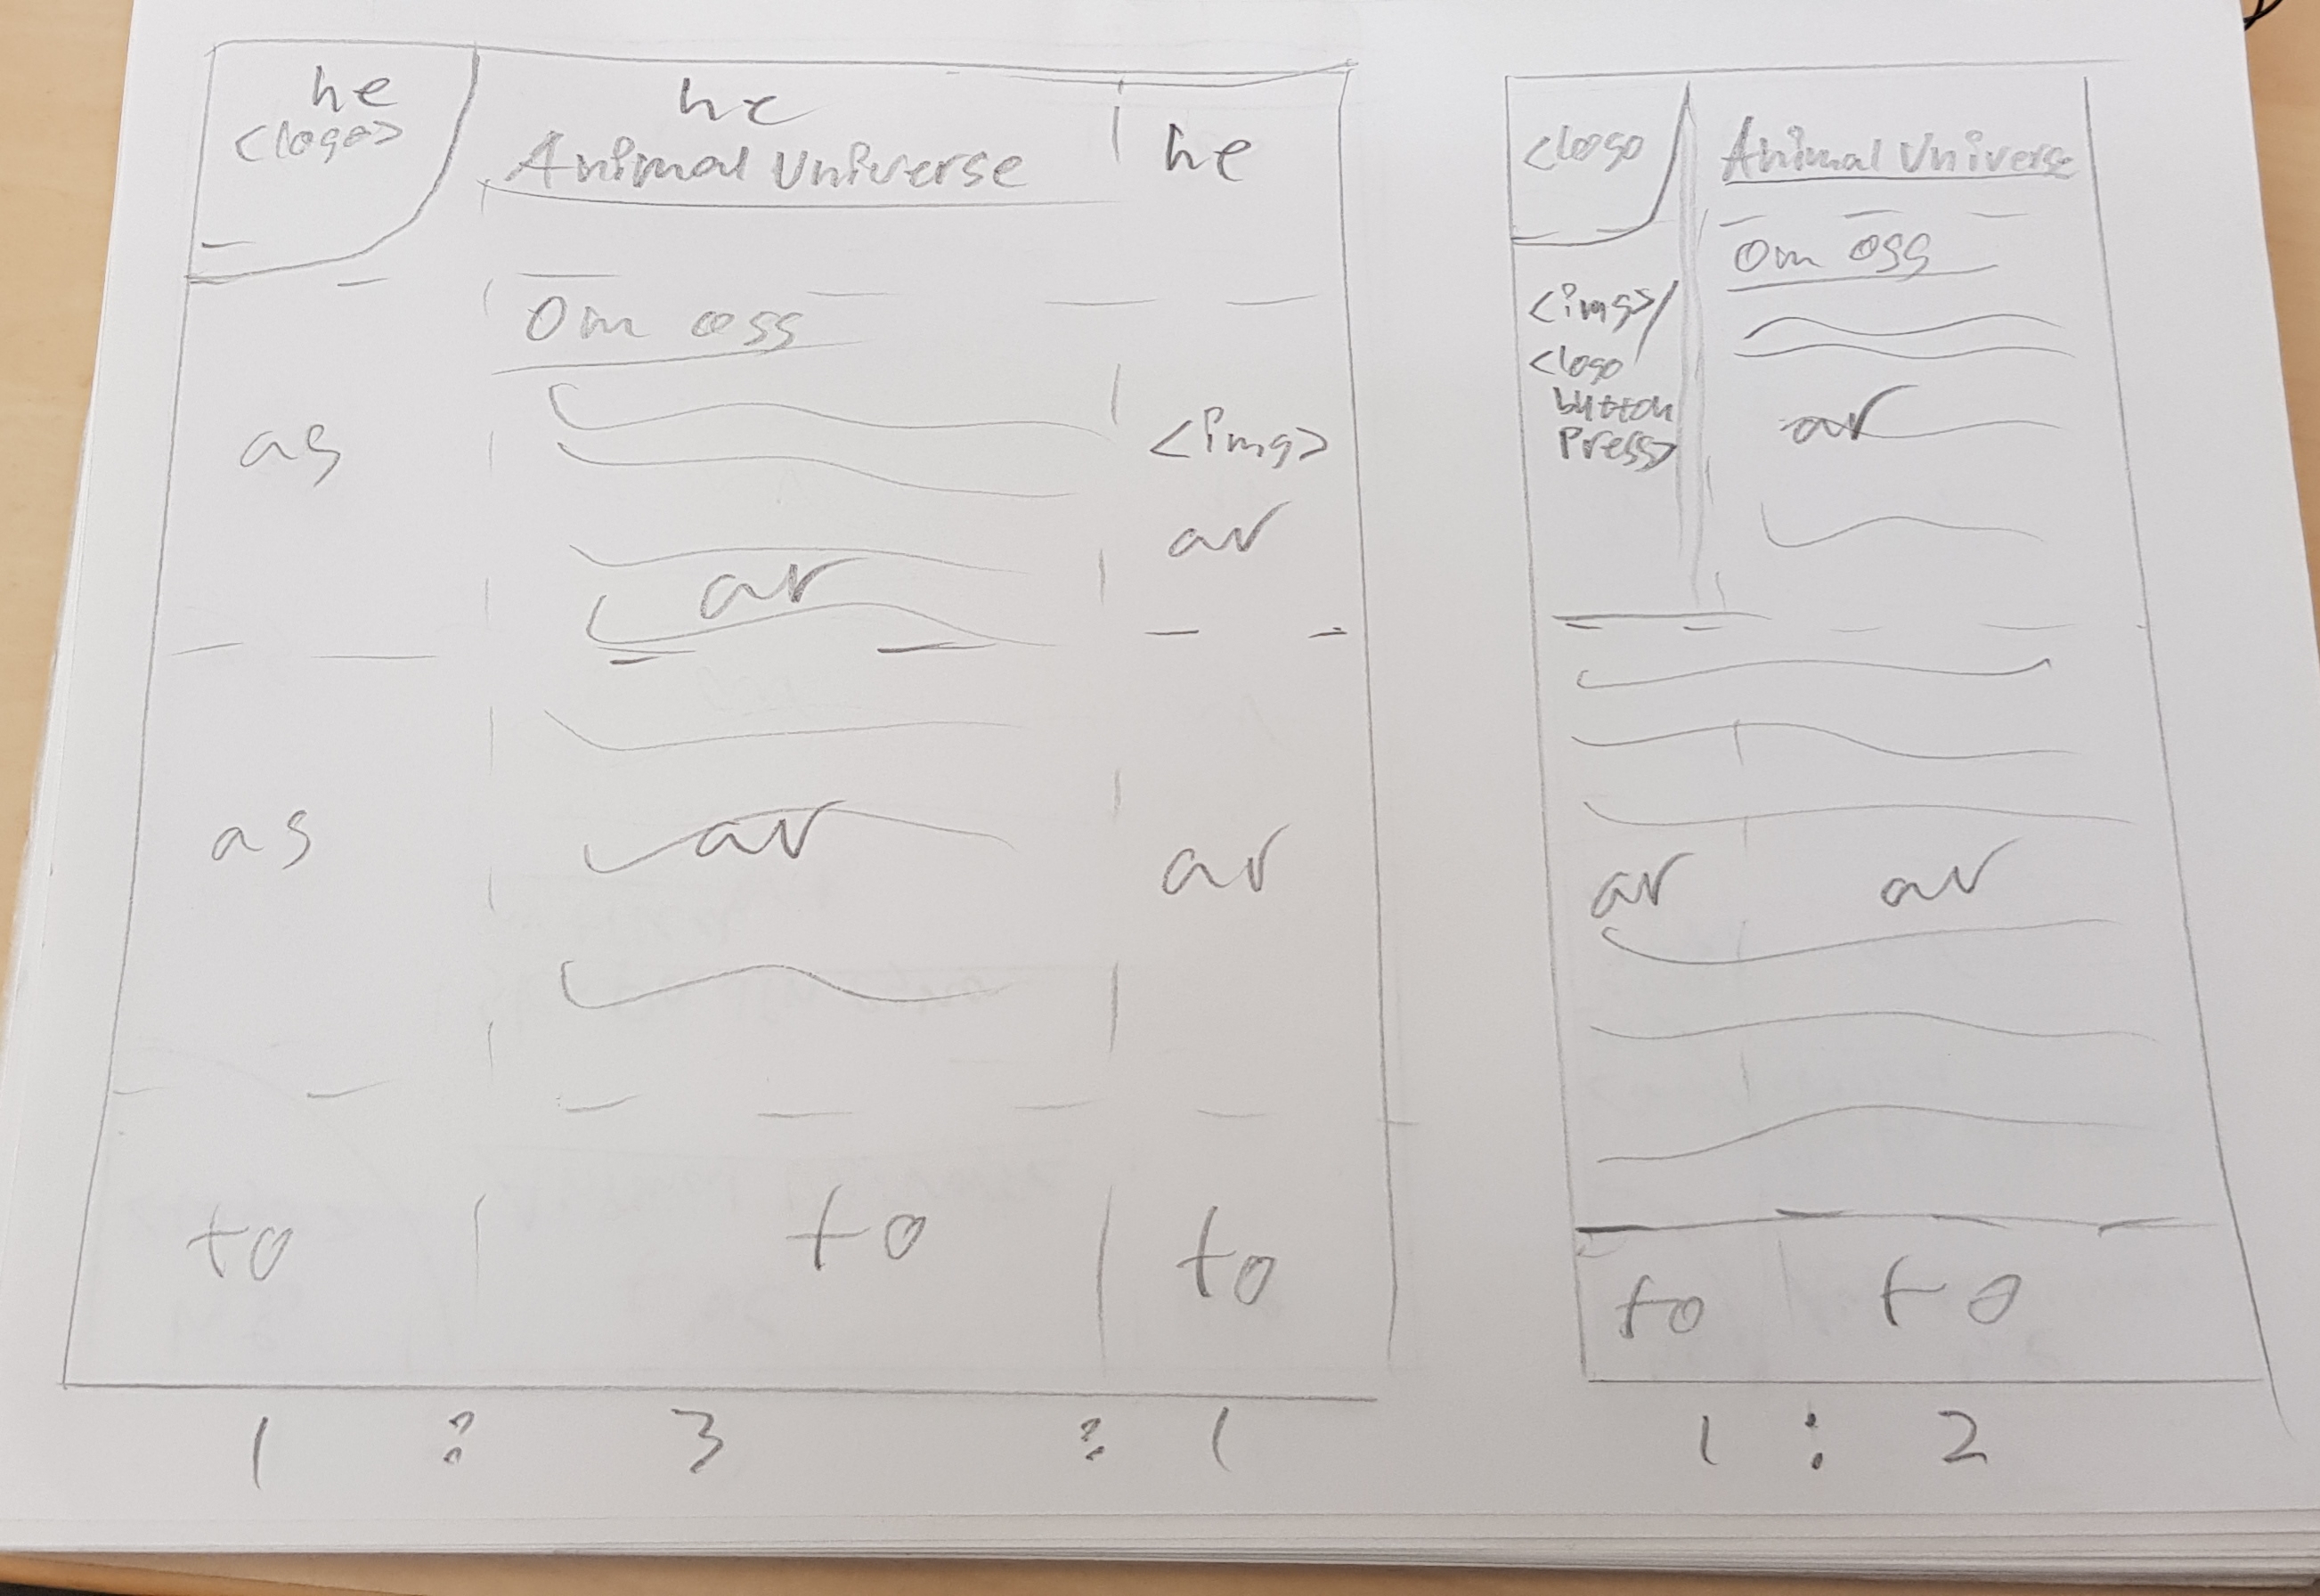 he
<logo>
he
Animal Universe
he
Om oss
as
<img>
ar
ar
as
ar
ar
to
to
to
1 : 3 : 1
<logo
Animal Universe
Om oss
<img>/
<logo
button
Press>
ar
ar
ar
to
to
1 : 2